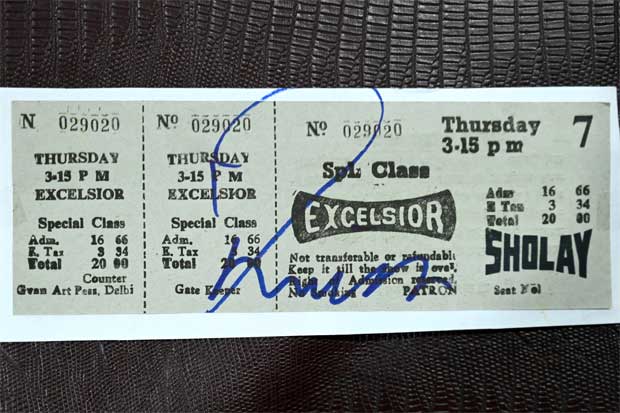 N 029020
THURSDAY
3-15 P M
EXCELSIOR
Special Class
Adm. 16 66
E. Tax 3 34
Total 20 00
Counter
Gyan Art Pess, Delhi
No 029020
THURSDAY
3-15 P M
EXCELSIOR
Special Class
Adm. 16 66
E. Tax 3 34
Total 20 00
Gate Keeper
No 029020
Spl. Class
EXCELSIOR
Not transferable or refundable
Keep it till the show is over.
Right Admission reserved.
No PATRON
Thursday 7
3-15 p m
Adm 16 66
E Tax 3 34
Total 20 00
SHOLAY
Seat No